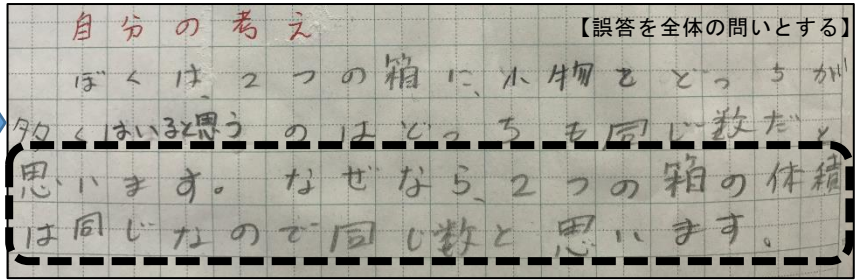 自分の考え
【誤答を全体の問いとする】
ぼくは、2つの箱に、小物をどっちが
多くはいると思うのはどっちも同じ数だと
思います。なぜなら、2つの箱の体積
は同じなので同じ数と思います。